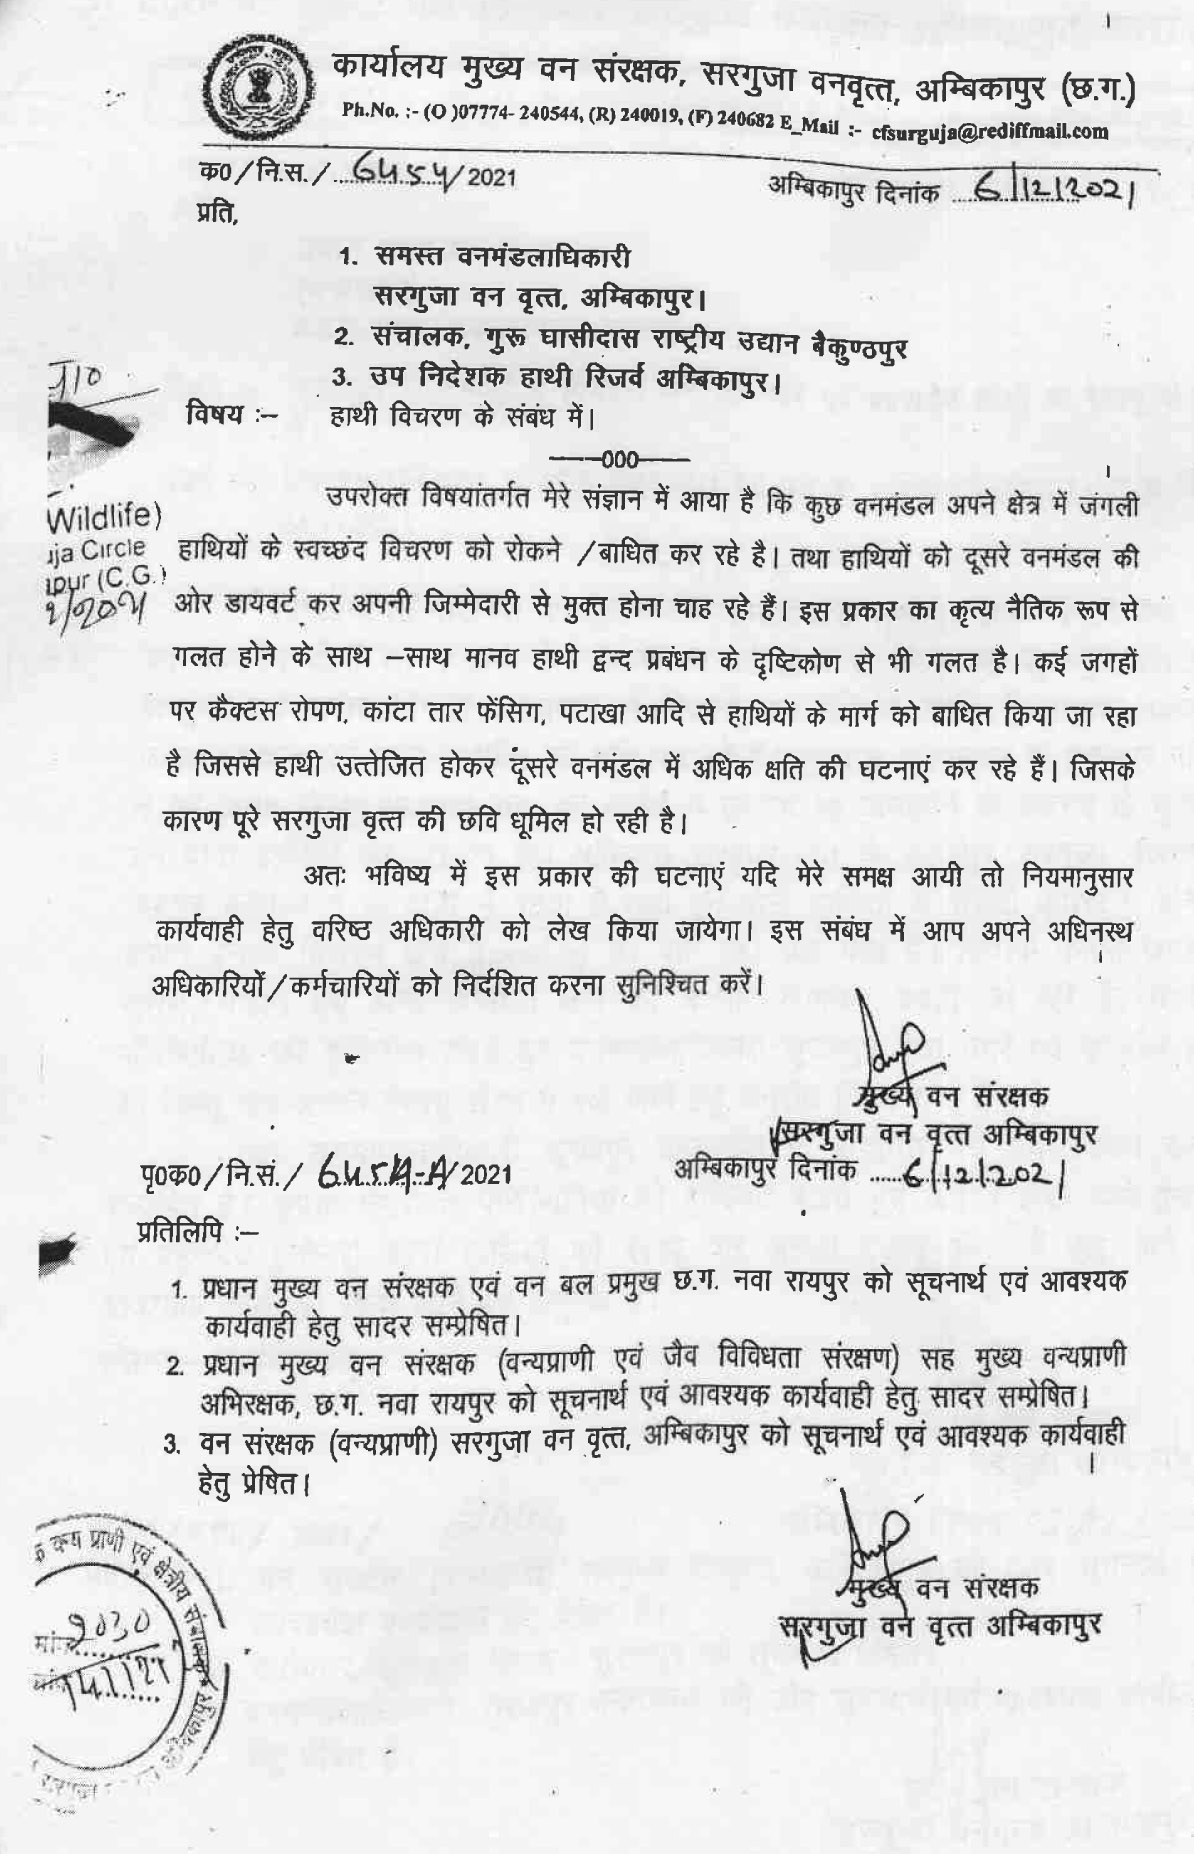 कार्यालय मुख्य वन संरक्षक, सरगुजा वनवृत्त, अम्बिकापुर (छ.ग.)
Ph.No. :- (O )07774- 240544, (R) 240019, (F) 240682 E_Mail :- cfsurguja@rediffmail.com
क0/नि.स./ 6454/2021
अम्बिकापुर दिनांक 6/12/2021
प्रति,
1. समस्त वनमंडलाधिकारी
सरगुजा वन वृत्त, अम्बिकापुर।
2. संचालक, गुरू घासीदास राष्ट्रीय उद्यान बैकुण्ठपुर
3. उप निदेशक हाथी रिजर्व अम्बिकापुर।
विषय :– हाथी विचरण के संबंध में।
——000——
उपरोक्त विषयांतर्गत मेरे संज्ञान में आया है कि कुछ वनमंडल अपने क्षेत्र में जंगली
हाथियों के स्वच्छंद विचरण को रोकने /बाधित कर रहे है। तथा हाथियों को दूसरे वनमंडल की
ओर डायवर्ट कर अपनी जिम्मेदारी से मुक्त होना चाह रहे हैं। इस प्रकार का कृत्य नैतिक रूप से
गलत होने के साथ –साथ मानव हाथी द्वन्द प्रबंधन के दृष्टिकोण से भी गलत है। कई जगहों
पर कैक्टस रोपण, कांटा तार फेंसिग, पटाखा आदि से हाथियों के मार्ग को बाधित किया जा रहा
है जिससे हाथी उत्तेजित होकर दूसरे वनमंडल में अधिक क्षति की घटनाएं कर रहे हैं। जिसके
कारण पूरे सरगुजा वृत्त की छवि धूमिल हो रही है।
अतः भविष्य में इस प्रकार की घटनाएं यदि मेरे समक्ष आयी तो नियमानुसार
कार्यवाही हेतु वरिष्ठ अधिकारी को लेख किया जायेगा। इस संबंध में आप अपने अधिनस्थ
अधिकारियों/कर्मचारियों को निर्दशित करना सुनिश्चित करें।
Wildlife)
uja Circle
ipur (C.G.)
मुख्य वन संरक्षक
सरगुजा वन वृत्त अम्बिकापुर
पृ0क0/नि.सं./ 6454-A/2021
अम्बिकापुर दिनांक 6/12/2021
प्रतिलिपि :–
1. प्रधान मुख्य वन संरक्षक एवं वन बल प्रमुख छ.ग. नवा रायपुर को सूचनार्थ एवं आवश्यक
कार्यवाही हेतु सादर सम्प्रेषित।
2. प्रधान मुख्य वन संरक्षक (वन्यप्राणी एवं जैव विविधता संरक्षण) सह मुख्य वन्यप्राणी
अभिरक्षक, छ.ग. नवा रायपुर को सूचनार्थ एवं आवश्यक कार्यवाही हेतु सादर सम्प्रेषित।
3. वन संरक्षक (वन्यप्राणी) सरगुजा वन वृत्त, अम्बिकापुर को सूचनार्थ एवं आवश्यक कार्यवाही
हेतु प्रेषित।
मुख्य वन संरक्षक
सरगुजा वन वृत्त अम्बिकापुर
प्राणी एवं क्षेत्रीय संचालक
अम्बिकापुर